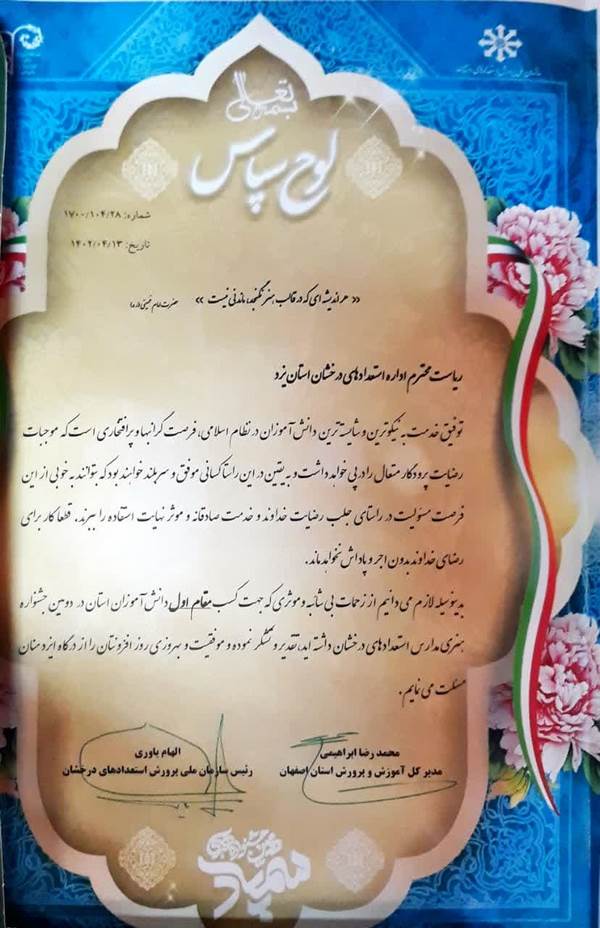 بسمه تعالی
لوح سپاس
شماره: ۱۷۰۰/۱۰۴/۲۸
تاریخ: ۱۴۰۲/۰۴/۱۳
« هر اندیشه ای که در قالب هنر نگنجد، ماندنی نیست » حضرت امام خمینی (ره)
ریاست محترم اداره استعدادهای درخشان استان یزد
توفیق خدمت به نیکوترین و شایسته ترین دانش آموزان در نظام اسلامی، فرصت گرانبها و پرافتخاری است که موجبات
رضایت پروردگار متعال را در پی خواهد داشت و به یقین در این راستا کسانی موفق و سربلند خواهند بود که بتوانند به خوبی از این
فرصت مسئولیت در راستای جلب رضایت خداوند و خدمت صادقانه و موثر نهایت استفاده را ببرند. قطعا کار برای
رضای خداوند بدون اجر و پاداش نخواهد ماند.
بدینوسیله لازم می دانیم از زحمات بی شائبه و موثری که جهت کسب مقام اول دانش آموزان استان در دومین جشنواره
هنری مدارس استعدادهای درخشان داشته اید، تقدیر و تشکر نموده و موفقیت و بهروزی روز افزونتان را از درگاه ایزد منان
مسئلت می نمایم.
محمد رضا ابراهیمی
مدیر کل آموزش و پرورش استان اصفهان
الهام یاوری
رئیس سازمان ملی پرورش استعدادهای درخشان